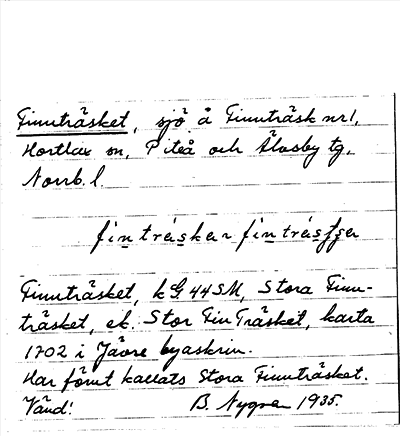 Finnträsket, sjö å Finnträsk nr 1,
Hortlax sn, Piteå och Älvsby tg,
Norrb. l.
Finnträsket, k G. 44 SM, Stora Finn-
träsket, ek. Stor Fin Träsket, karta
1702 i Jävre byaskrin.
Har förut kallats Stora Finnträsket.
Vänd! B. Nygren 1935.